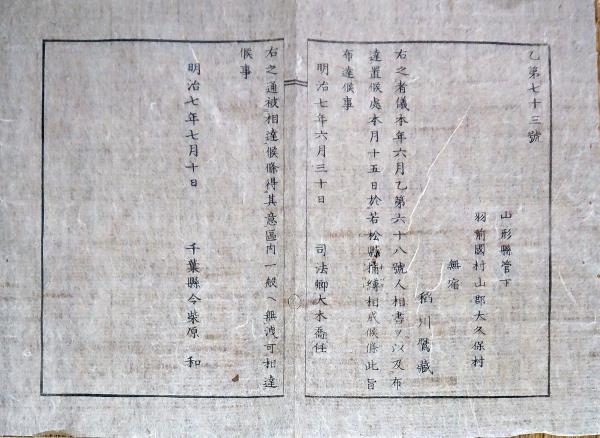 乙第七十三號
山形縣管下
羽前國村山郡大久保村
無宿
稻川鷲藏
右之者儀本年六月乙第六十八號人相書ヲ以及布
達置候處本月十五日於若松縣捕縛相成候條此旨
布達候事
明治七年六月三十日 司法卿大木喬任
右之通被相達候條得其意區内一般ヘ無洩可相達
候事
明治七年七月十日 千葉縣令柴原 和